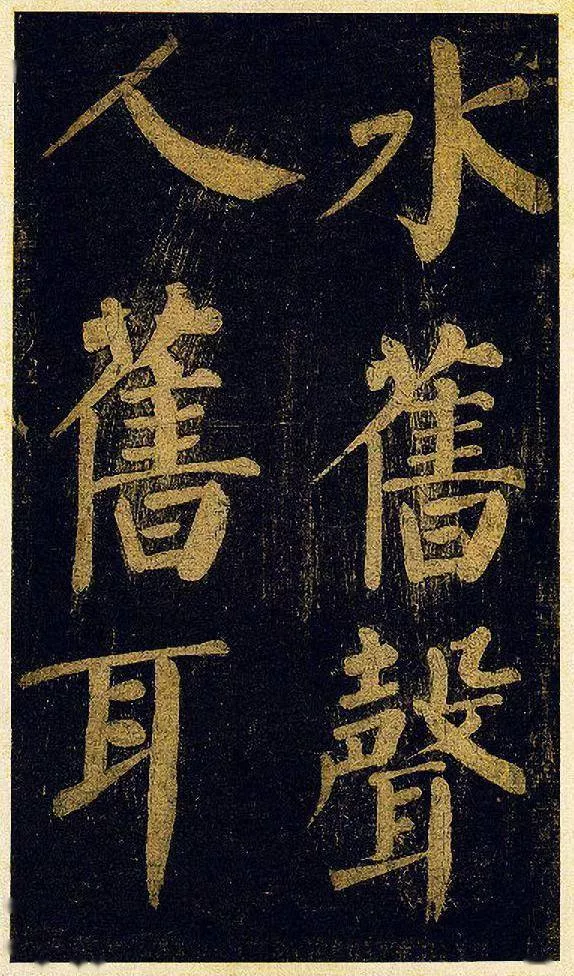 水舊聲
人舊耳